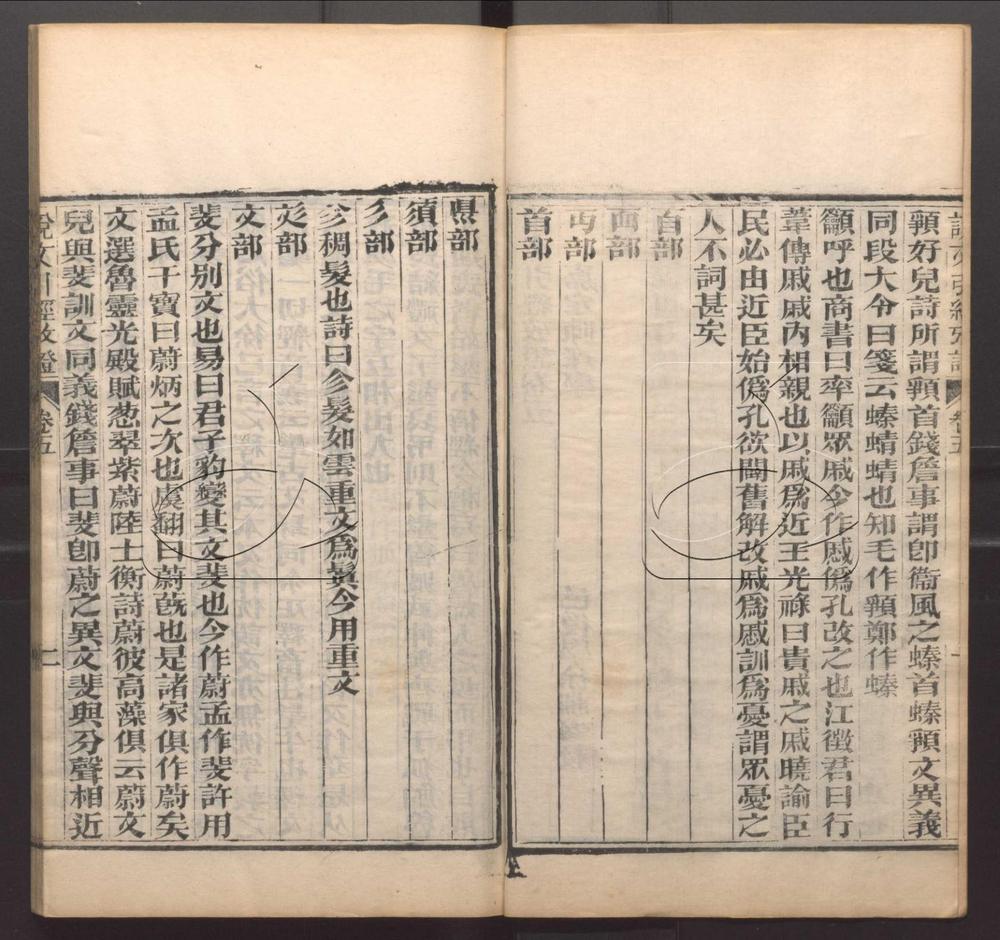 䫜好皃詩所謂䫜首錢詹事謂卽衞風之螓首螓䫜文異義
同段大令曰箋云螓蜻蜻也知毛作䫜鄭作螓
籲呼也商書曰率籲眾戚今作慼僞孔改之也江徵君曰行
葦傳戚戚內相親也以戚爲近王光祿曰貴戚之戚曉諭臣
民必由近臣始僞孔欲闢舊解改戚爲慼訓爲憂謂眾憂之
人不詞甚矣
𦣻部
面部
丏部
首部
㥯部
須部
彡部
㐱稠髮也詩曰㐱髮如雲重文爲鬒今用重文
彣部
文部
斐分別文也易曰君子豹變其文斐也今作蔚孟作斐許用
孟氏干寶曰蔚炳之次也虞翻曰蔚䓲也是諸家俱作蔚矣
文選魯靈光殿賦葱翠紫蔚陸士衡詩蔚彼高藻俱云蔚文
皃與斐訓文同義錢詹事曰斐卽蔚之異文斐與分聲相近
說文引經攷證
卷五
二